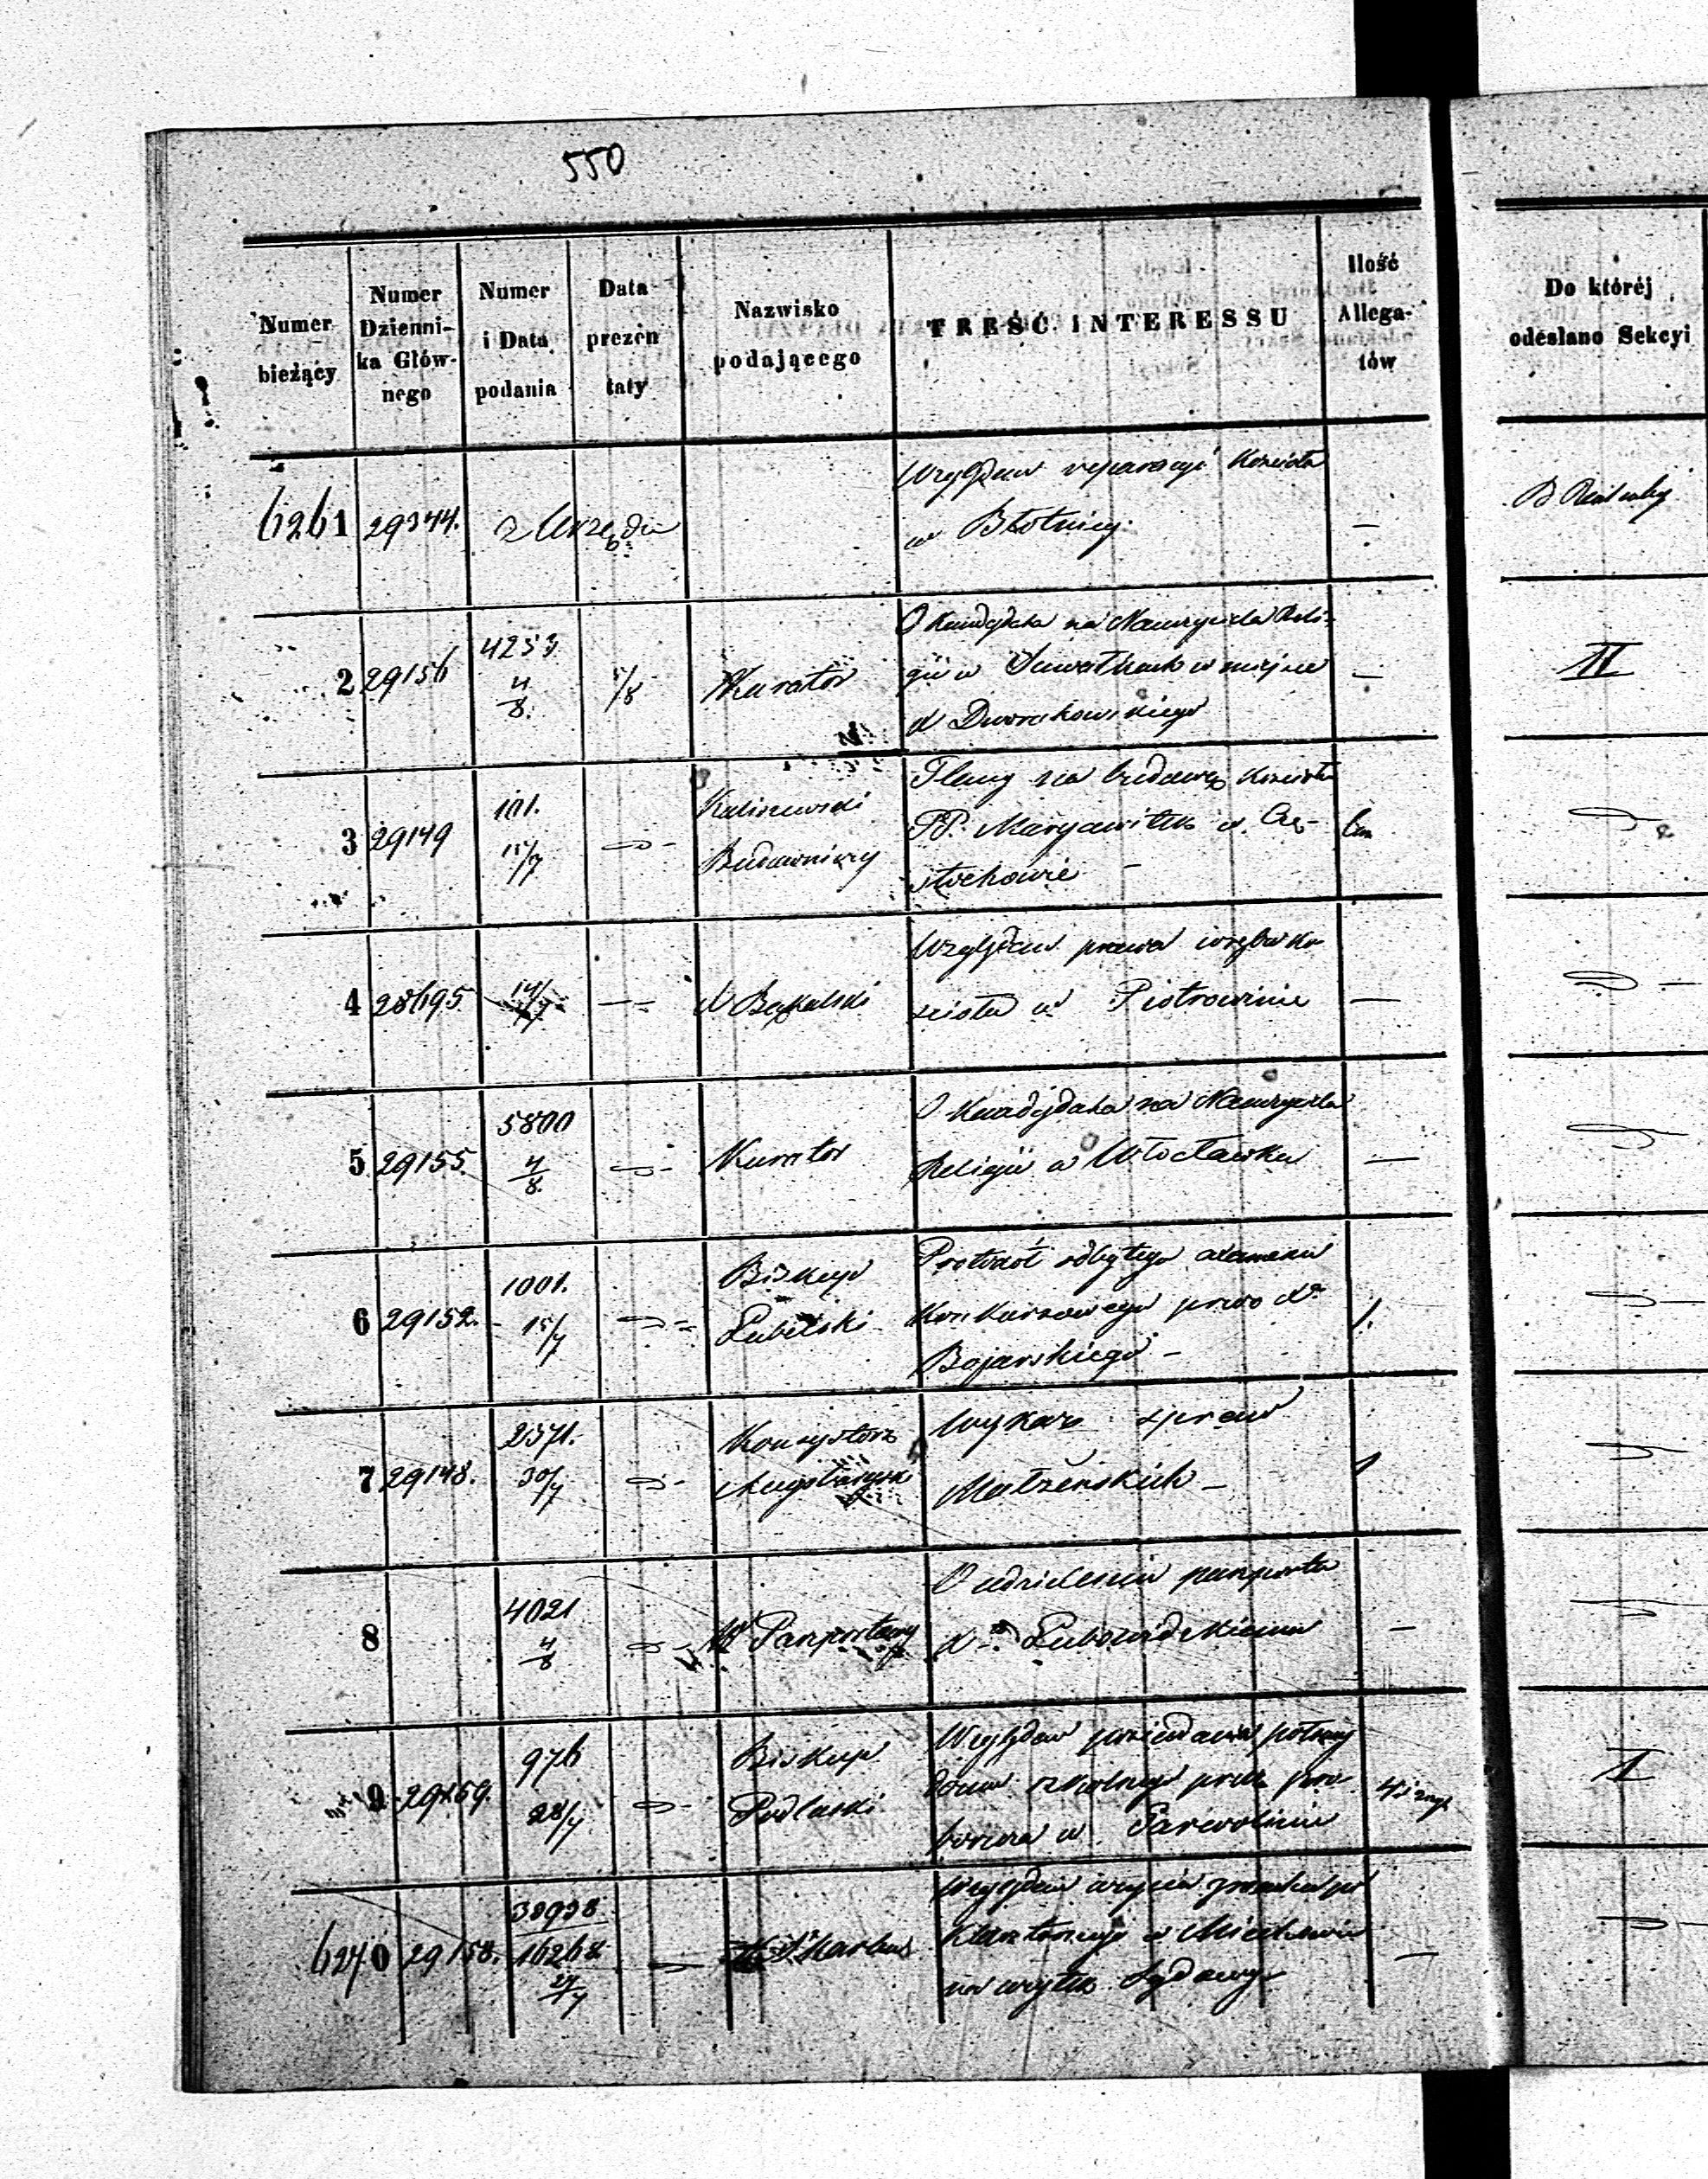 550
Numer bieżący
Numer Dzienni-ka Głów-nego
Numer i Data podania
Data prezen taty
Nazwisko podającego
TREŚĆ INTERESSU
Ilość Allega-tów
Do któréj odesłano Sekcyi
6261 29344. z Urzędu
Względem reparacyi Kościoła
w Błotnicy. —
2 29156 4253 4/8. 5/8 Kurator
O Kandydata na Nauczyciela Reli-
gii w Suwałkach w miejsce
X Dworakowskiego — II
3 29149 101. 15/7
Kaliszewski
Budowniczy
Plany na budowę Kościoła
PP. Maryawitek w Czę-
stochowie —
4 28695 14/7
Względem prawa wrębu Ko-
ścioła w Piotrowinie —
5 29155. 5800 4/8. Kurator
O Kandydata na Nauczyciela
Religii w Włocławku —
6 29152. 1001. 15/7
Biskup
Lubelski
Protokół odbytego examenu
Konkursowego przez X
Bojarskiego — 1.
7 29148. 2371. 30/7
Konsystorz
Augustowski
Wykaz spraw
Małżeńskich — 1
8 4021 4/8 Paszportowy
O udzielenie paszportu
X Lubowidzkiemu —
9 29159. 976 28/7
Biskup
Podlaski
Względem posiadania połowy
domu szkolnego przez pro-
boszcza w Parwolinie I
6270 29158. 38938 16268 24/7 Skarbu
Względem wzięcia gmachu po
Klasztornego w Miechowie
na użytek Sądowy —